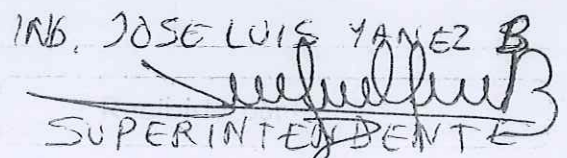 ING. JOSE LUIS YANEZ B
SUPERINTENDENTE